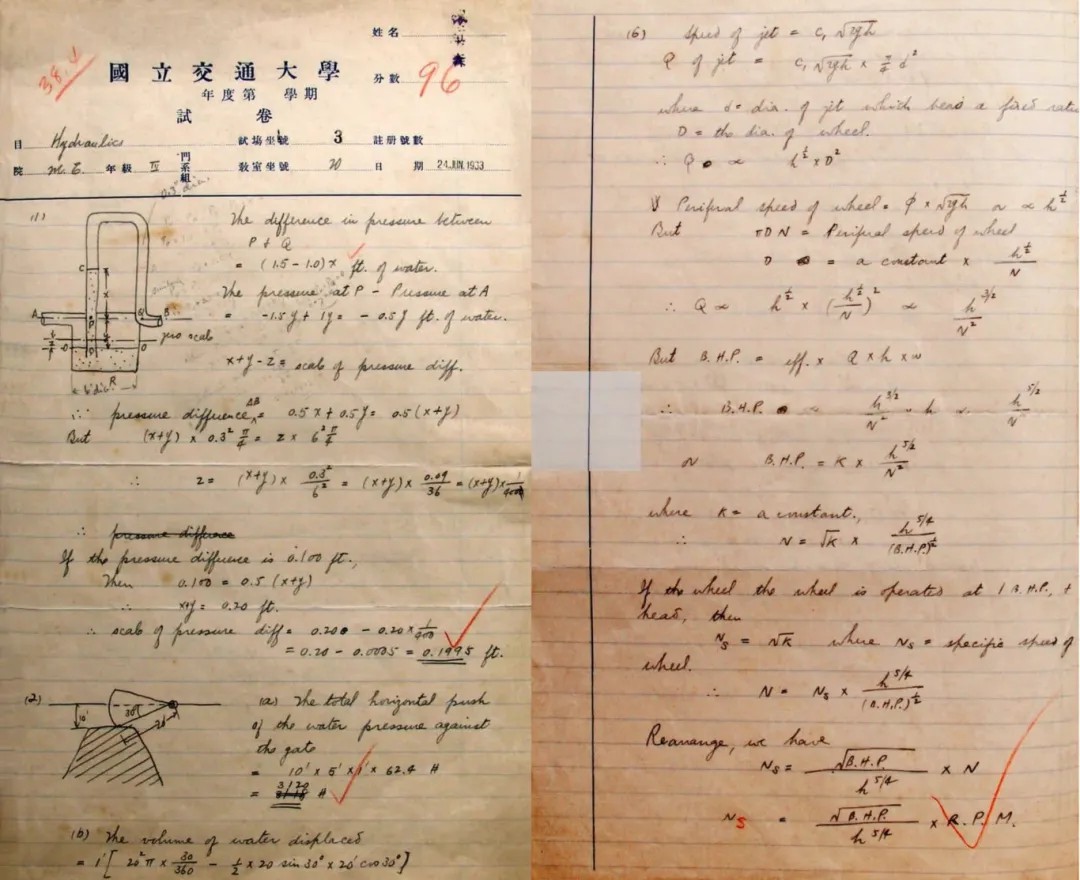 姓名
38.4
國立交通大學
分數 96
年度第 學期
試卷
目 Hydraulics 試場坐號 3 註册號數
院 M.E. 年級 IV 門系組 教室坐號 20 日期 24 JUN 1933
0.3" dia.
(1) The difference in pressure between
P & Q
= (1.5 - 1.0) x ft. of water.
The pressure at P - Pressure at A
= -1.5y + 1y = - 0.5y ft. of water.
C
x
A
P
Q
B
zero scale
O
D
O
R
6" dia.
x+y-z = scale of pressure diff.
∴ pressure difference AB = 0.5x + 0.5y = 0.5 (x+y)
But (x+y) x 0.3² π/4 = z x 6² π/4
∴ z = (x+y) x 0.3²/6² = (x+y) x 0.09/36 = (x+y) x 1/400
∴ pressure difference
If the pressure difference is 0.100 ft.,
Then 0.100 = 0.5 (x+y)
∴ x+y = 0.20 ft.
∴ scale of pressure diff = 0.200 - 0.20 x 1/400
= 0.20 - 0.0005 = 0.1995 ft.
(2)
10'
30°
20'
(a) The total horizontal push
of the water pressure against
the gate
= 10' x 5' x 1' x 62.4 #
= 3120 #
(b) The volume of water displaced
= 1' [ 20² π x 30/360 - 1/2 x 20 sin 30° x 20' cos 30° ]
(6) Speed of jet = C₁ √2gh
Q of jet = C₁ √2gh x π/4 d²
where d = dia. of jet which bears a fixed ratio
D = the dia. of wheel.
∴ Q ∝ h^½ x D²
& Periferal speed of wheel = φ x √2gh ∝ h^½
But πDN = Periferal speed of wheel
D = a constant x h^½/N
∴ Q ∝ h^½ x (h^½/N)² ∝ h^3/2/N²
But B.H.P. = eff. x Q x h x w
∴ B.H.P. ∝ h^3/2/N² · h ∝ h^5/2/N²
or B.H.P. = K x h^5/2/N²
where K = a constant.,
∴ N = √K x h^5/4/(B.H.P.)^½
If the wheel the wheel is operated at 1 B.H.P., +
head, then
Ns = √K where Ns = specific speed of
wheel.
∴ N = Ns x h^5/4/(B.H.P.)^½
Rearrange, we have
Ns = √B.H.P./h^5/4 x N
Ns = √B.H.P./h^5/4 x R.P.M.